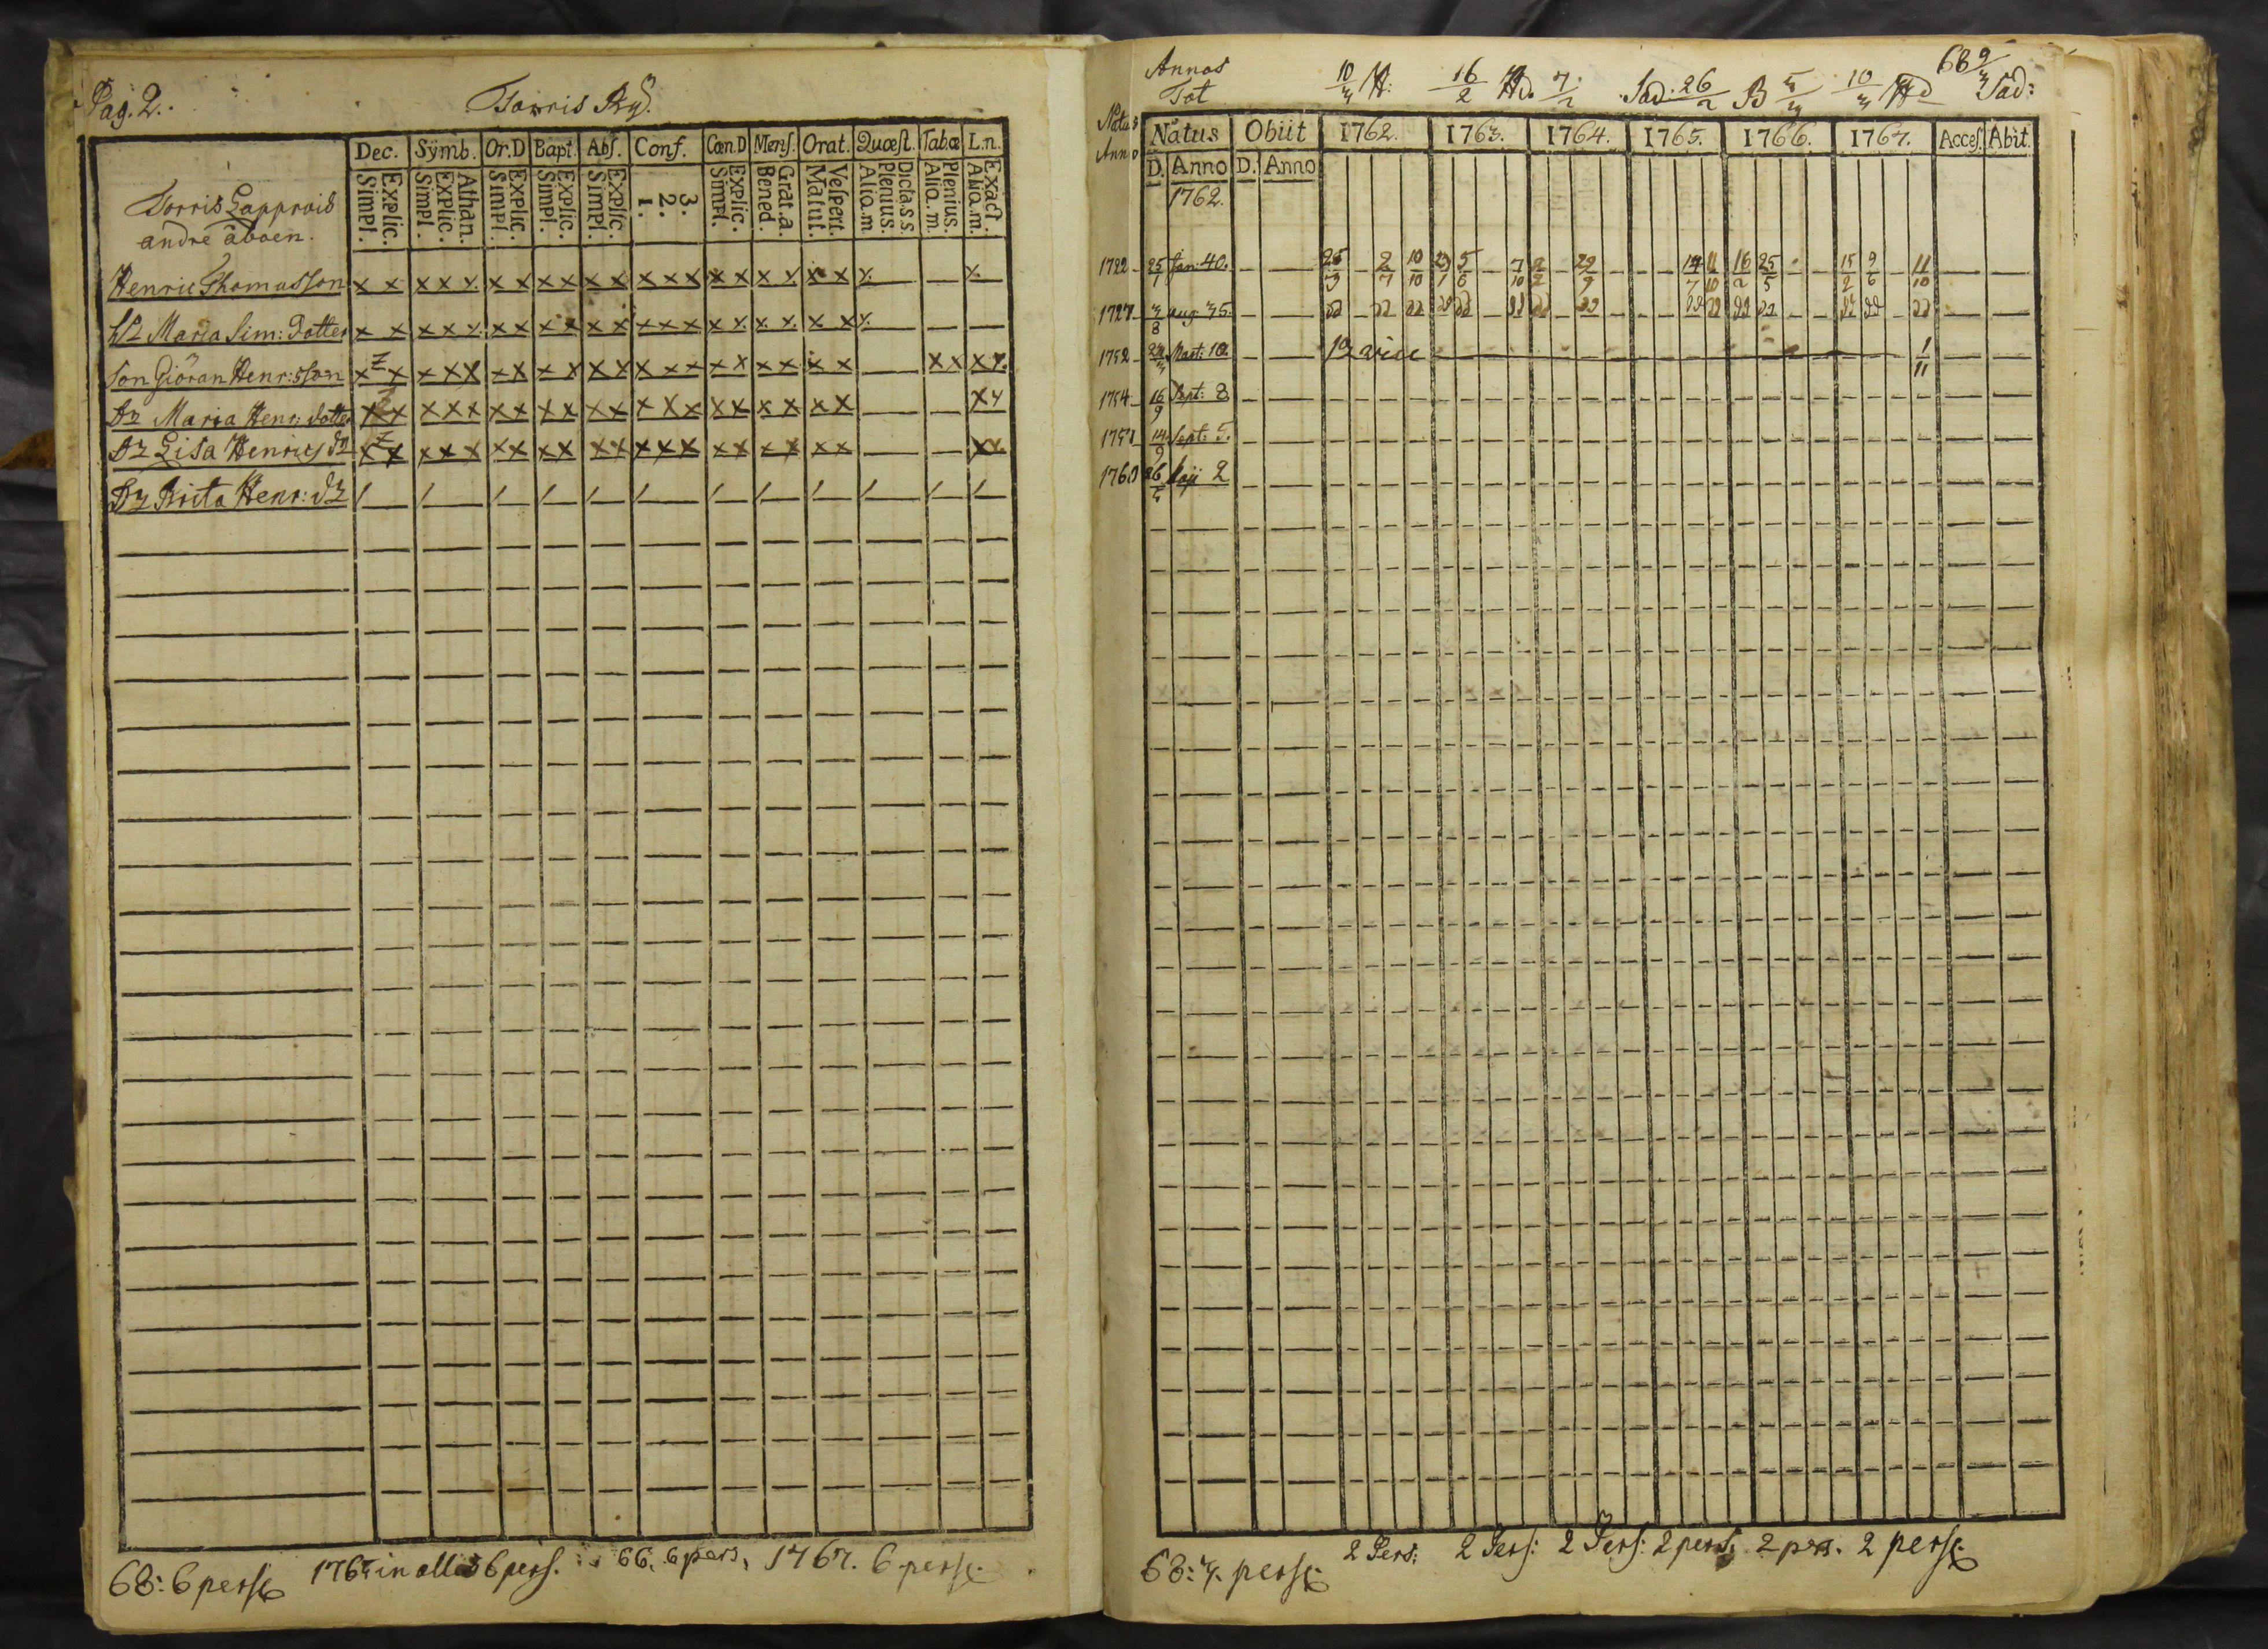 Pag. 2.
Torris By.
Dec. Sÿmb. Or.D Bapt. Abs. Conf. Cœn.D Mens. Orat. Quæst. Tab.œ L.n.
Explic. Simpl. Athan. Explic. Simpl. Explic. Simpl. Explic. Simpl. Explic. Simpl. 3. 2. 1. Explic. Simpl. Grat.a. Bened. Vespert. Matut. Dicta.s.s. Plenius. Aliq.m Plenius. Aliq.m. Exact. Aliq.m.
Torris Lappraid
andre åboen.
Henric Thomasson x x x x x x x x x x x x x x x x x x x
Maria Sim: dotter x x x x x x x x x x x x x x x x x
Son Giöran Henr:sson x x x x x x x x x x x x x x x x x x x x x x
Dr Maria Henr: dotter x x x x x x x x x x x x x x x x x x x x
Dr Lisa Henrics dr x x x x x x x x x x x x x x x x x x x x
Dr Brita Henr: dr
68: 6 perss in alles 6 pers. 66. 6 pers. 1767. 6 perss.
Annos
Tot
10/3 H: 16/2 Hd. 7/2 Sad: 26/2 B 5/3 10/3 Hd 68 9/3 Sad:
Natus
Anno
Natus Obiit 1762. 1763. 1764. 1765. 1766. 1767. Acces. Abit.
D. Anno D. Anno
1762.
1722 25/1 Jan: 40. 2/7 10/10 5/6 7/10 16/2 25/5 15/2 9/6 11/10
1727 3/8 aug. 35.
1752 Mart: 10. 1/11
1754 16/9 Sept: 8
1757 14/9 Sept: 5.
1760 26/5 Maji 2
68: perss 2 Pers: 2 Pers: 2 Pers: 2 pers. 2 prs. 2 perss.